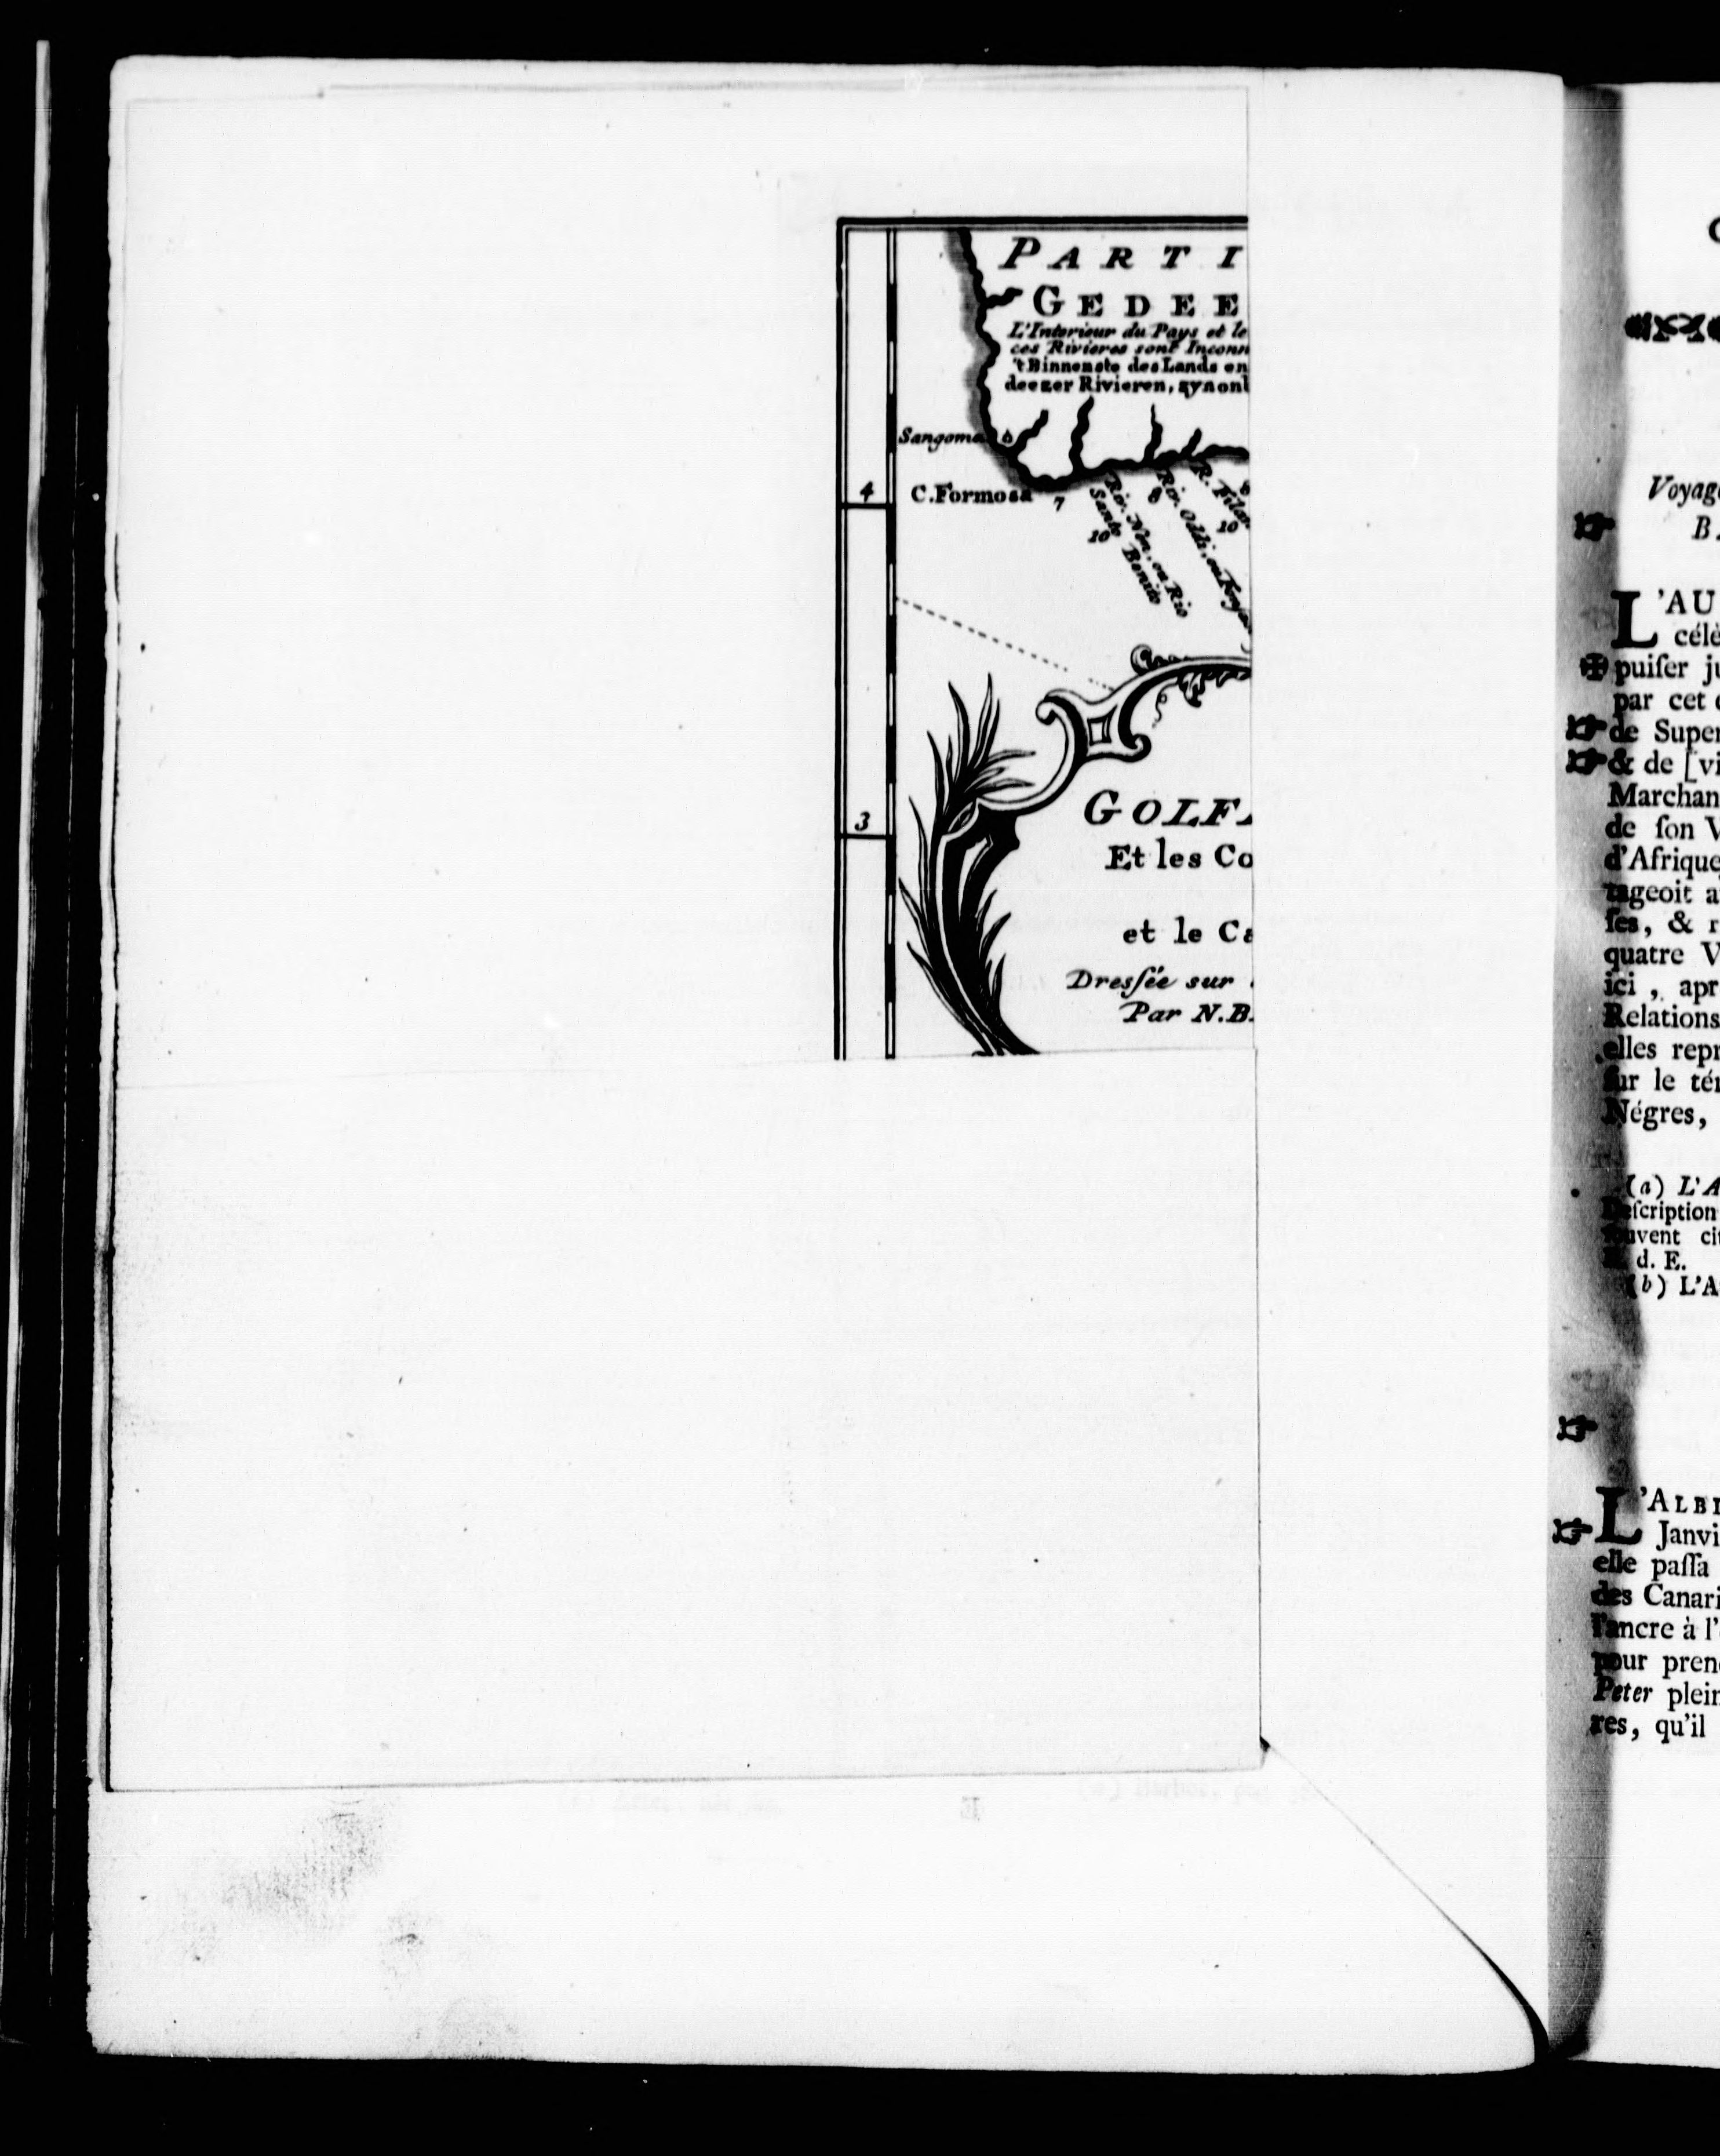 PARTI
GEDEE
L'Interieur du Pays et le
ces Rivieres sont Inconn
't Binnenste des Lands en
deezer Rivieren, zyn onb
Sangoma
6
4
C. Formosa
7
8
Riv. Non, ou Rio
Santo Benito
10
Riv. Oddi, ou
R. Filan
10
3
GOLF
Et les Co
et le Ca
Dressée sur
Par N.B.
Voyag
B.
L'AU
célè
puiſer ju
par cet
de Super
& de [vi
Marchan
de ſon V
d'Afrique
tageoit a
ſes, & r
quatre V
ici, apr
Relations
elles repr
ſur le té
Négres,
(a) L'A
Deſcription
ſouvent ci
d. E.
(b) L'A
L'ALBI
Janvi
elle paſſa
des Canari
l'ancre à l'
pour pren
Peter plein
res, qu'il